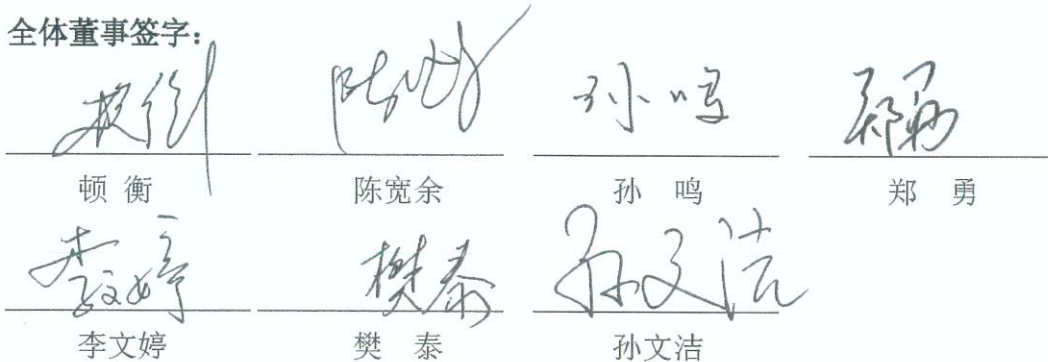 全体董事签字：
顿衡 陈宽余 孙鸣 郑勇
顿 衡 陈宽余 孙 鸣 郑 勇
李文婷 樊泰 孙文洁
李文婷 樊 泰 孙文洁